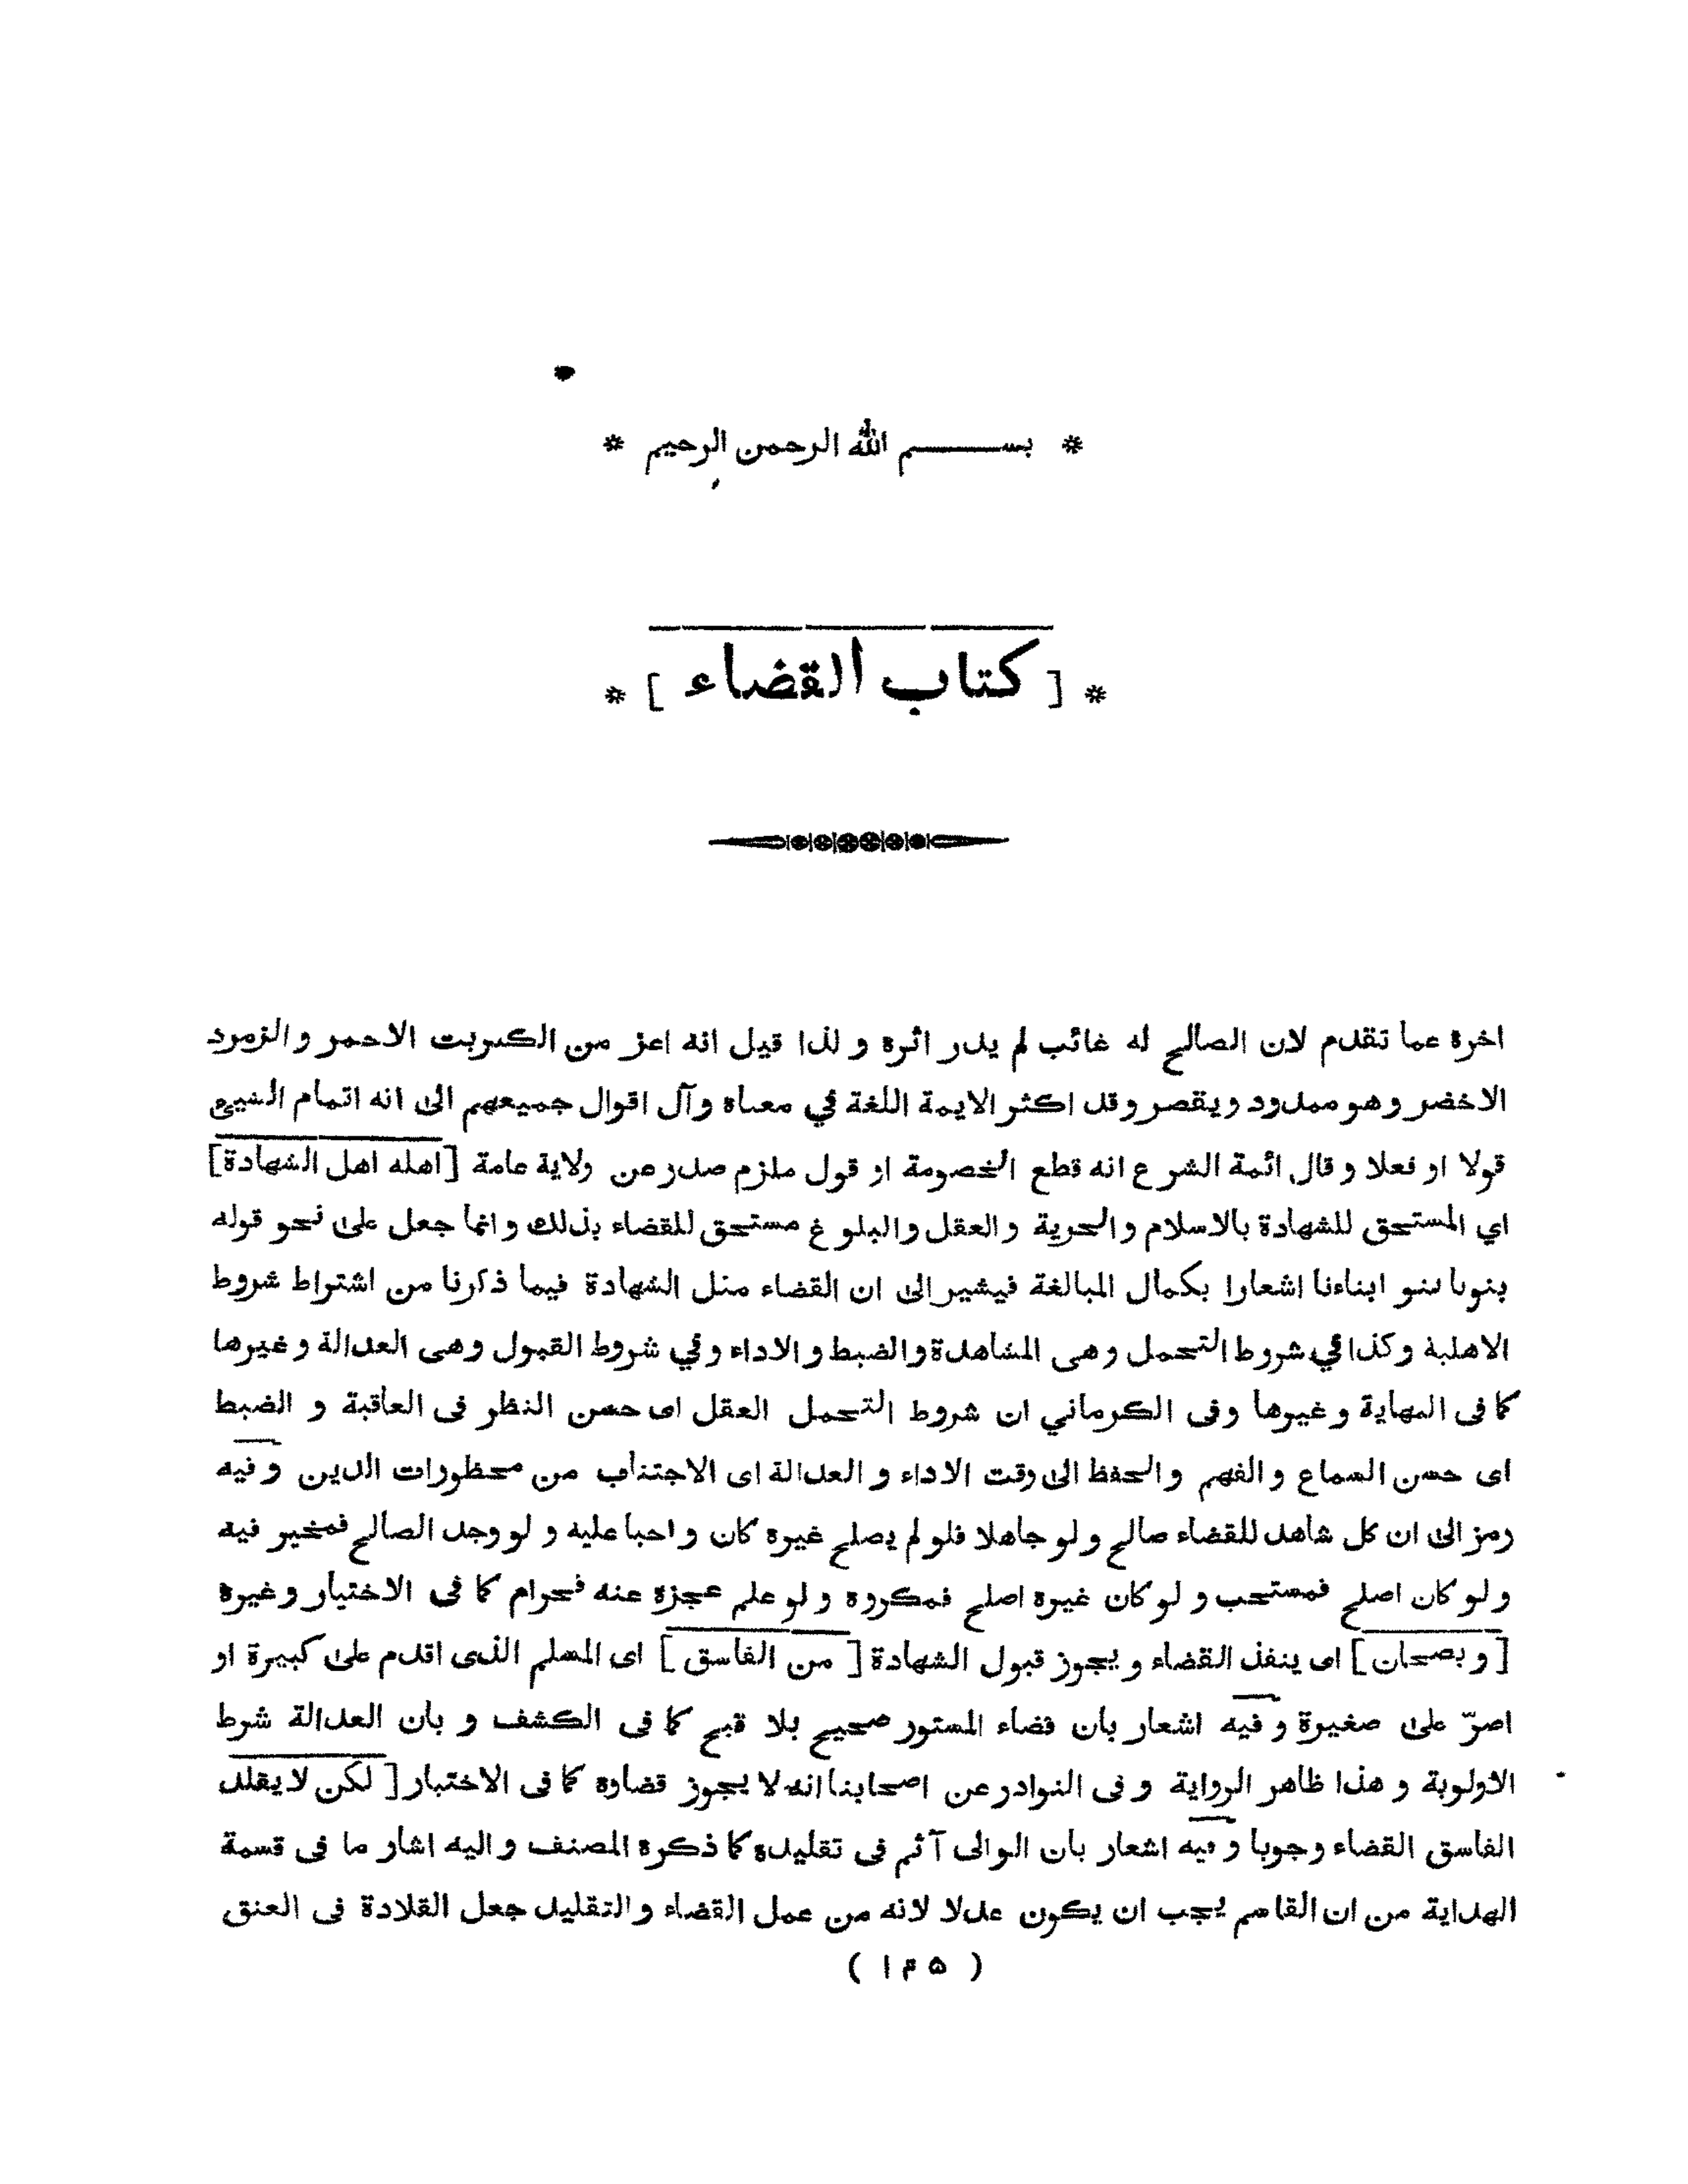 * بســـــم الله الرحمن الرحيم *
* [ كتاب القضاء ] *
اخره عما تقدم لان الصالح له غائب لم يدر اثره و لذا قيل انه اعز من الكبريت الاحمر و الزمرد
الاخضر و هو ممدود و يقصر و قد اكثر الايمة اللغة في معناه و آل اقوال جميعهم الى انه اتمام الشيئ
قولا او فعلا و قال ائمة الشرع انه قطع الخصومة او قول ملزم صدر عن ولاية عامة [اهله اهل الشهادة]
اي المستحق للشهادة بالاسلام و الحرية و العقل و البلوغ مستحق للقضاء بذلك و انما جعل على نحو قوله
بنونا بنو ابناءنا اشعارا بكمال المبالغة فيشير الى ان القضاء مثل الشهادة فيما ذكرنا من اشتراط شروط
الاهلية و كذا في شروط التحمل و هى المشاهدة و الضبط و الاداء و في شروط القبول و هى العدالة و غيرها
كما فى النهاية و غيرها و فى الكرماني ان شروط التحمل العقل اى حسن النظر فى العاقبة و الضبط
اى حسن السماع و الفهم و الحفظ الى وقت الاداء و العدالة اى الاجتناب من محظورات الدين و فيه
رمز الى ان كل شاهد للقضاء صالح و لو جاهلا فلو لم يصلح غيره كان واجبا عليه و لو وجد الصالح فمخير فيه
و لو كان اصلح فمستحب و لو كان غيره اصلح فمكروه و لو علم عجزه عنه فحرام كما فى الاختيار و غيره
[ و يصحان ] اى ينفذ القضاء و يجوز قبول الشهادة [ من الفاسق ] اى المسلم الذى اقدم على كبيرة او
اصرّ على صغيرة و فيه اشعار بان قضاء المستور صحيح بلا قبح كما فى الكشف و بان العدالة شرط
الاولوية و هذا ظاهر الرواية و فى النوادر عن اصحابنا انه لا يجوز قضاوه كما فى الاختيار [ لكن لا يقلد
الفاسق القضاء وجوبا و فيه اشعار بان الوالى آثم فى تقليده كما ذكره المصنف و اليه اشار ما فى قسمة
الهداية من ان القاسم يجب ان يكون عدلا لانه من عمل القضاء و التقليد جعل القلادة فى العنق